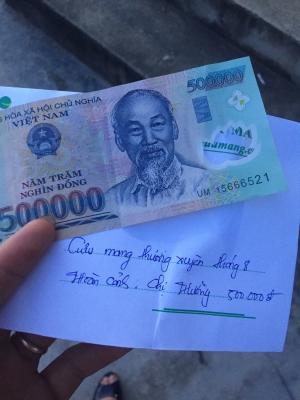 HÒA XÃ HỘI CHỦ NGHĨA
VIỆT NAM
500000
MA
uumang.c
NĂM TRĂM
NGHÌN ĐỒNG
UM 15666521
500000
Cưu mang thường xuyên tháng 8
Hoàn cảnh. Chị Hường 500.000đ